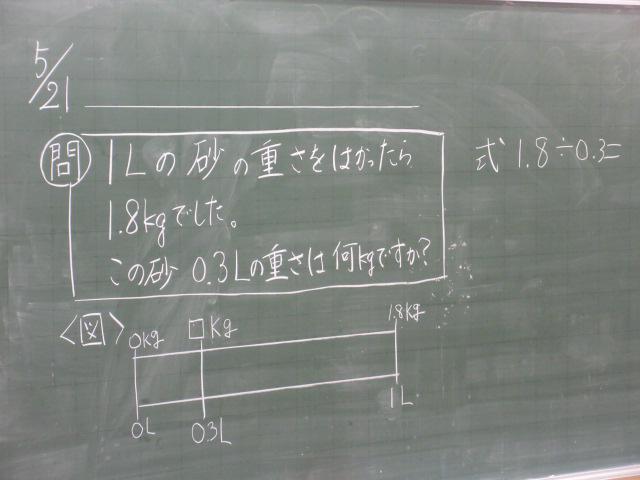 5/21
問 1Lの砂の重さをはかったら
1.8kgでした。
この砂 0.3Lの重さは何kgですか?
式 1.8÷0.3=
<図>
0kg □kg 1.8kg
0L 0.3L 1L